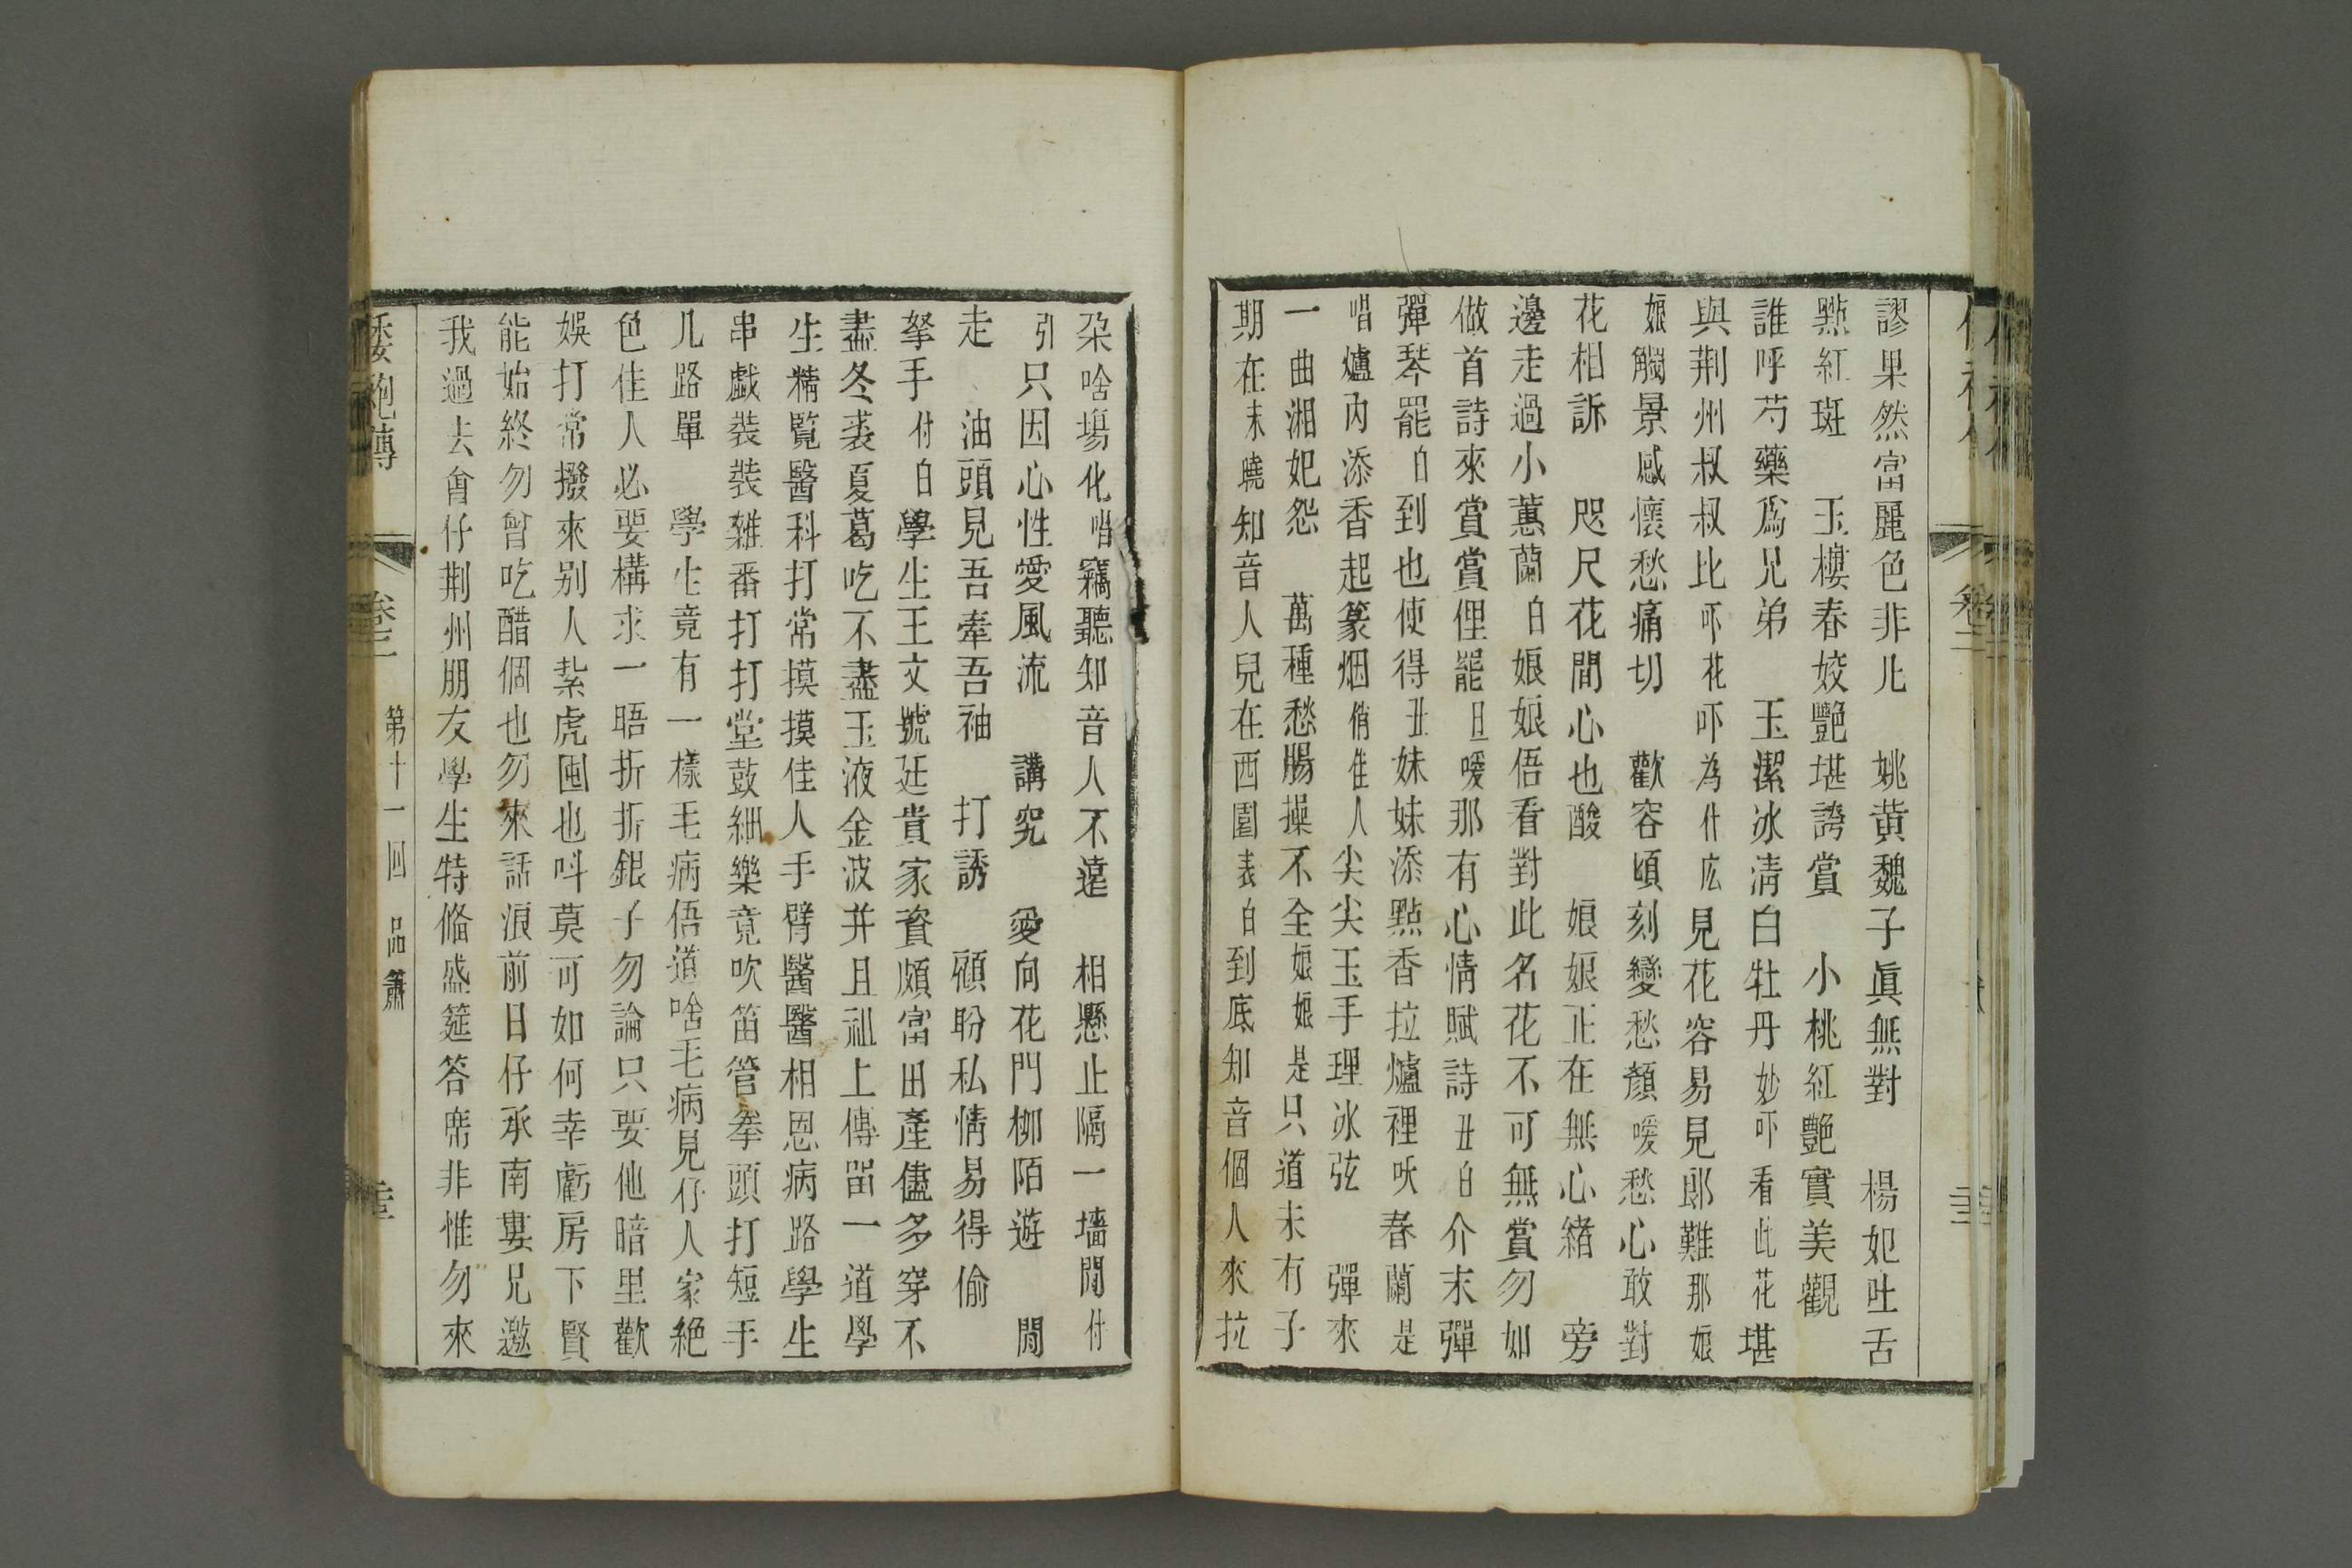 謬果然富麗色非凡　姚黄魏子眞無對　楊妃吐舌
㸃紅斑　玉樓春姣艷堪誇賞　小桃紅艷實美觀
誰呼芍藥爲兄弟　玉潔冰清白牡丹妙吓看此花堪
與荆州叔叔比吓花吓為什庅見花容易見郎難那娘
娘觸景感懷愁痛切　歡容頃刻變愁顏嗳愁心敢對
花相訴　咫尺花間心也酸　娘娘正在無心緒　旁
邊走過小蕙蘭白娘娘娘俉看對此名花不可無賞勿如
做首詩來賞賞俚罷旦嗳那有心情賦詩丑白介末彈
彈琴罷白到也使得丑妹妹添㸃香拉爐裡吷春蘭是
唱爐内添香起篆烟俏隹人尖尖玉手理冰弦　彈來
一曲湘妃怨　萬種愁腸操不全娘娘是只道未有子
期在末曉知音人兒在西園表白到底知音個人來拉
朶啥塲化唱竊聽知音人不遠　相懸止隔一墻閒付
引只因心性愛風流　講究　愛向花門柳陌遊　閒
走　油頭見吾牽吾袖　打誘　顧盼私情易得偷
拏手付白學生王文號廷貴家資頗富田產儘多穿不
盡冬裘夏葛吃不盡玉液金波并且祖上傳留一道學
生精覽醫科打常摸摸佳人手臂醫醫相思病路學生
串戯裝裝雜番打打堂鼓細樂竟吹笛管拳頭打短手
几路單　學生竟有一樣毛病俉道啥毛病見仔人家絶
色佳人必要構求一晤折折銀子勿論只要他暗里歡
娛打常撥來别人紮虎囤也呌莫可如何幸虧房下賢
能始終勿曾吃醋個也勿來話浪前日仔承南婁兄邀
我過去會仔荆州朋友學生特俻盛筵答席非惟勿來
倭袍傳　卷三　第十一回　品簫